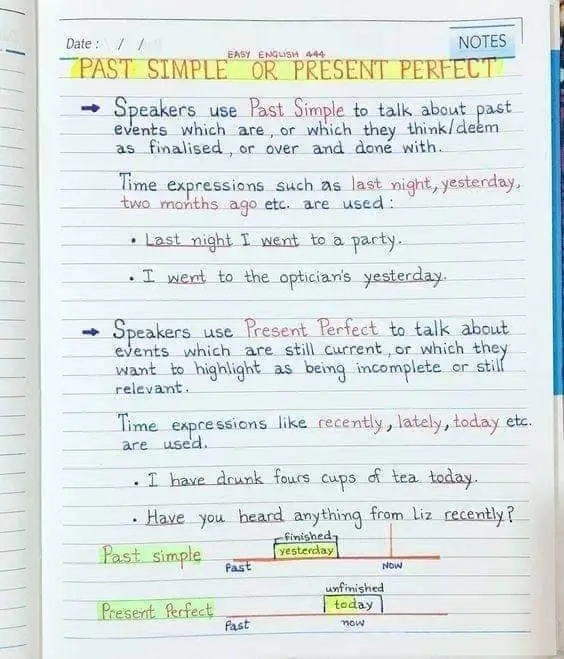 Date : / /
NOTES
EASY ENGLISH 444
PAST SIMPLE OR PRESENT PERFECT
→ Speakers use Past Simple to talk about past
events which are, or which they think/deem
as finalised, or over and done with.
Time expressions such as last night, yesterday,
two months ago etc. are used :
• Last night I went to a party.
• I went to the optician's yesterday.
→ Speakers use Present Perfect to talk about
events which are still current, or which they
want to highlight as being incomplete or still
relevant.
Time expressions like recently, lately, today etc.
are used.
• I have drunk fours cups of tea today.
• Have you heard anything from Liz recently?
finished
Past simple
yesterday
Past
NOW
unfinished
Present Perfect
today
Past
now